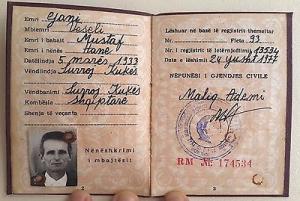 Emri Gani
Mbiemri Veseli
Emri i babait Mustaf
Emri i nënës Hane
Datëlindja 5 marës 1933
Vendlindja Surroj Kukës
Vendbanimi Surroj Kukës
Kombësia Shqiptare
Shenja të veçanta
Nënëshkrimi
i mbajtësit
2
Lëshuar në bazë të regjistrit themeltar
Fleta 93
N. i regjistrit të letërnjoftimit 13534
Data e lëshimit 24 gusht 1977
NËPUNËSI I GJENDJES CIVILE
Maliq Ademi
RM № 174534
3